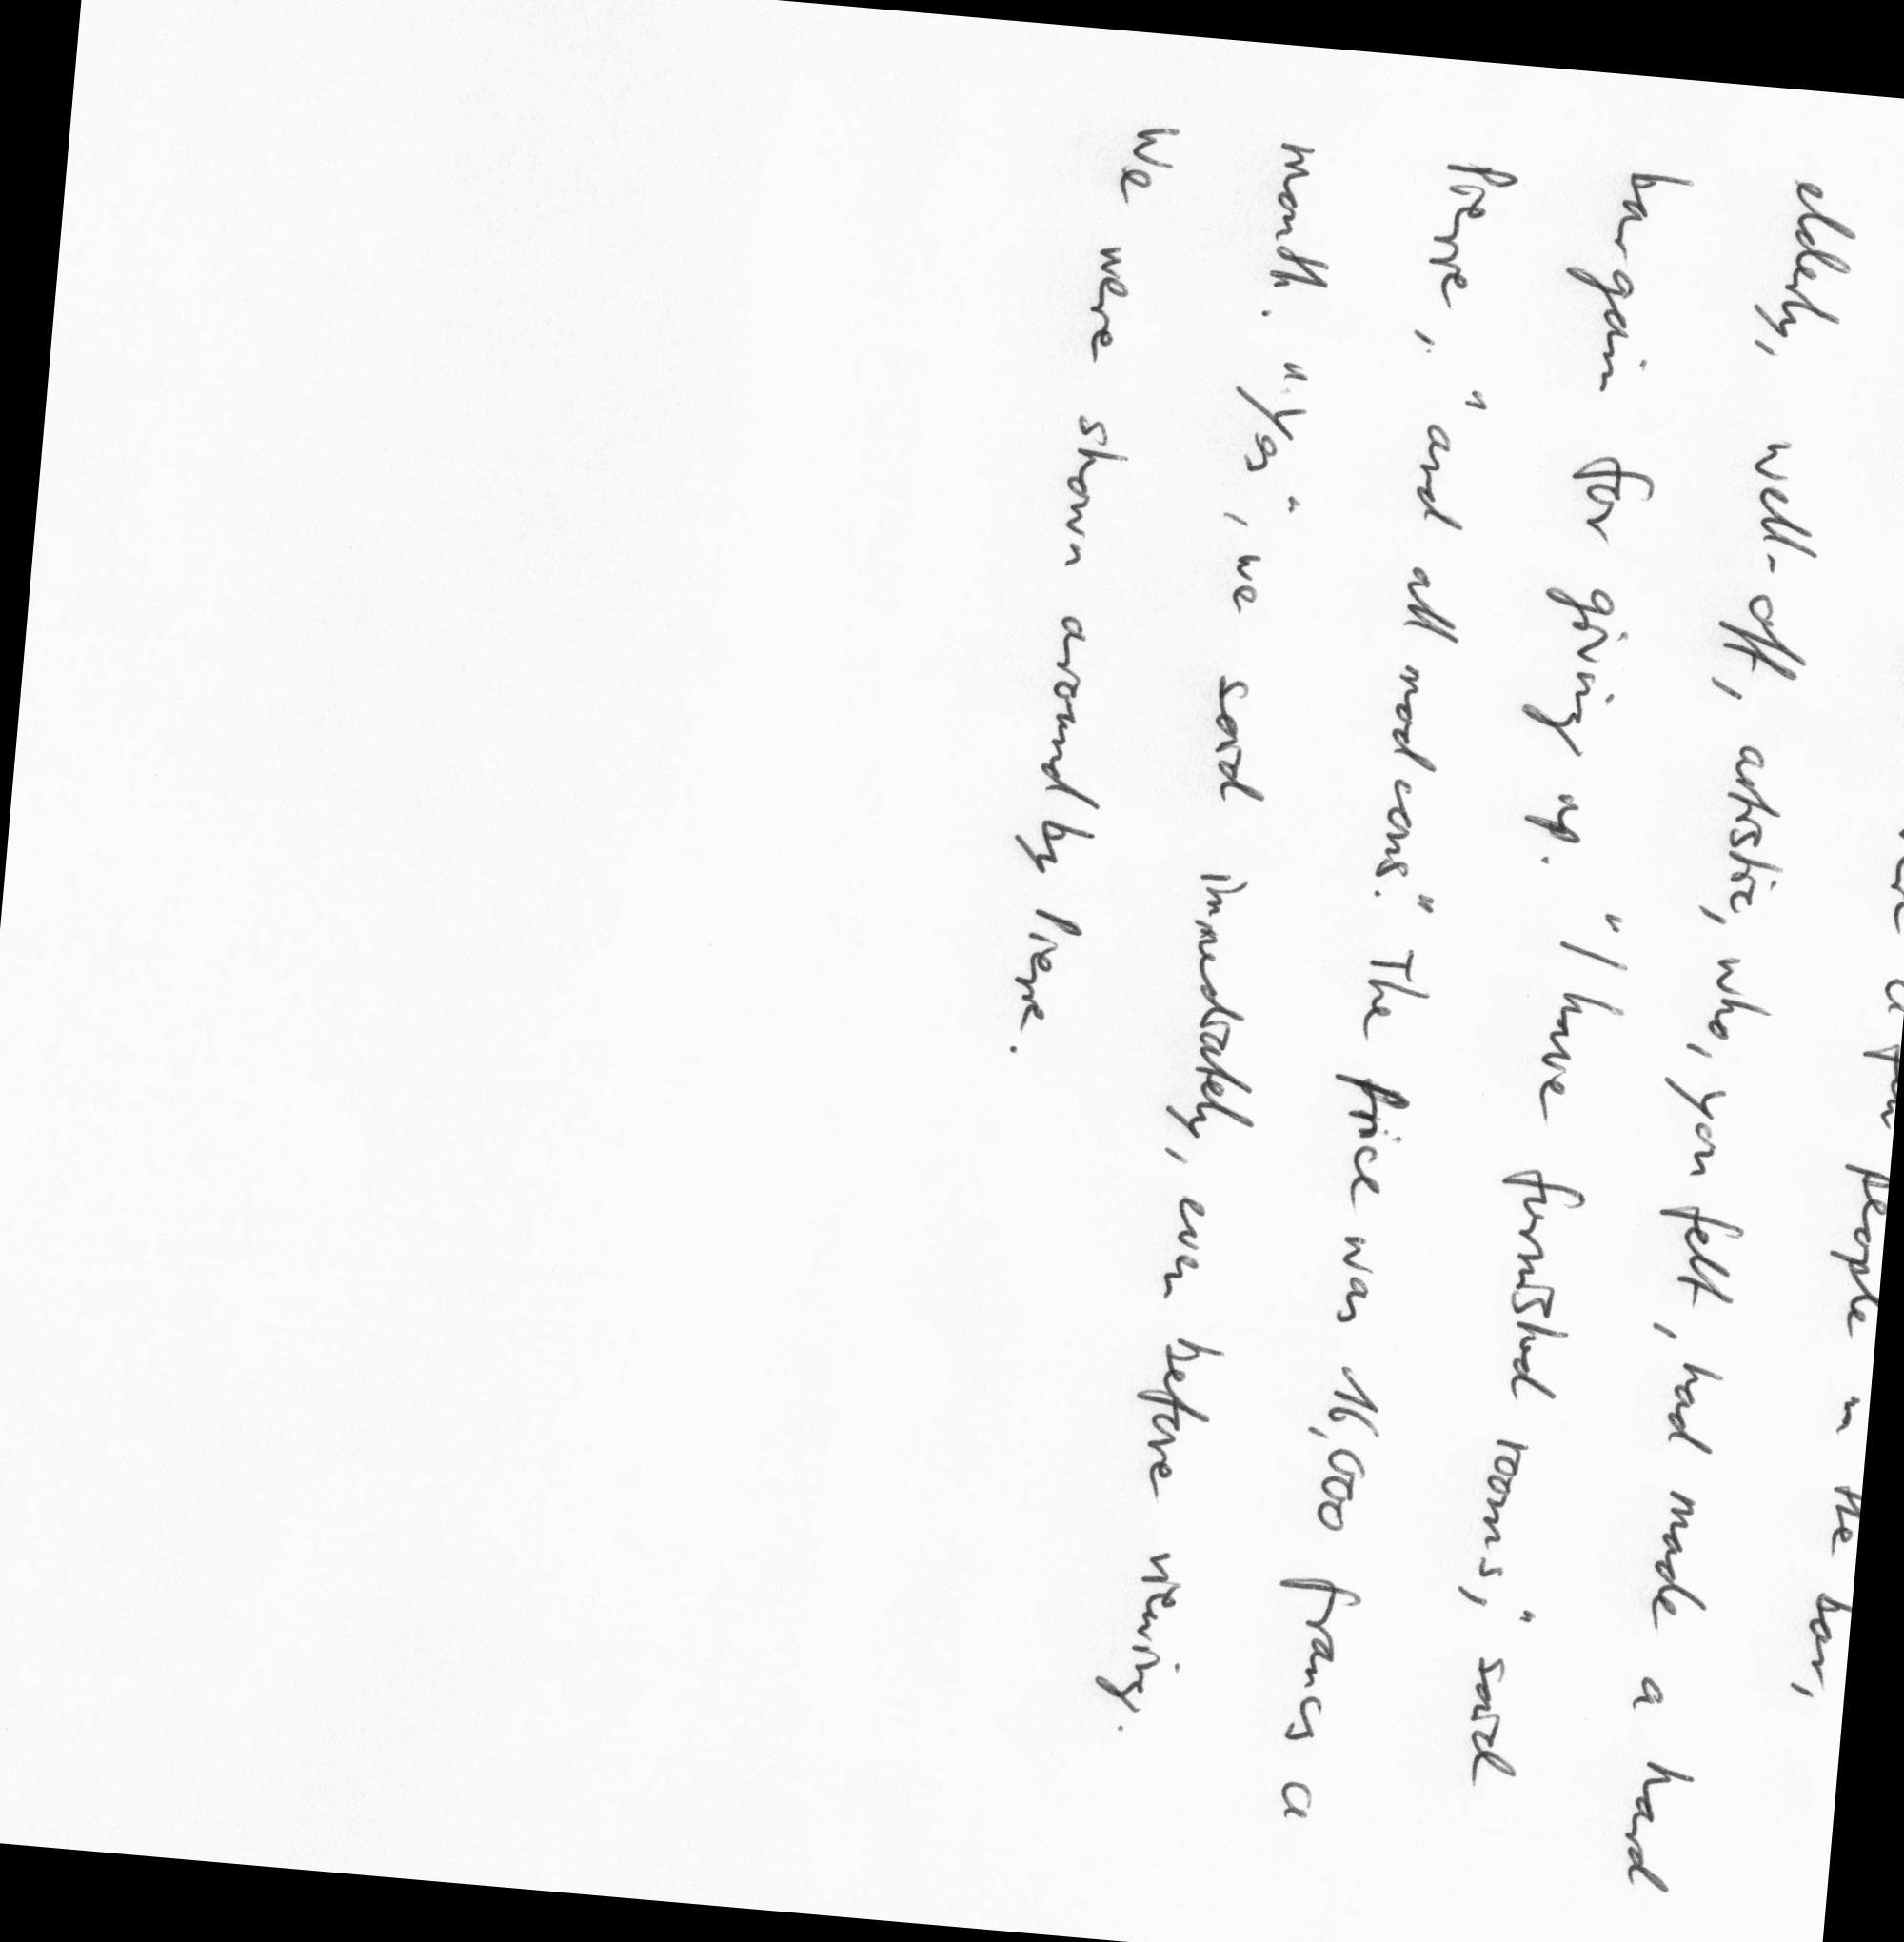 people in the bar,
elderly, well-off, artistic, who, you felt, had made a hard
bargain for giving up. "I have furnished rooms," said
Pierre, "and all mod cons." The price was 16,000 francs a
month. "Yes", we said immediately, even before viewing.
We were shown around by Pierre.